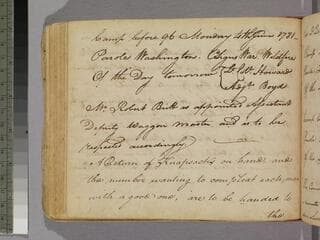 Camp before 96 Monday 4th June 1781.
Parole Washington. C Signs War Wildfire
Of the Day tomorrow Lt Col Howard
Adjt Boyd
Mr Robert Bulk is appointed Assistant
Deputy Waggon Master and is to be
respected accordingly
A Return of Knapsacks on hand and
the number wanting to compleat each man
with a good one, are to be handed to
the